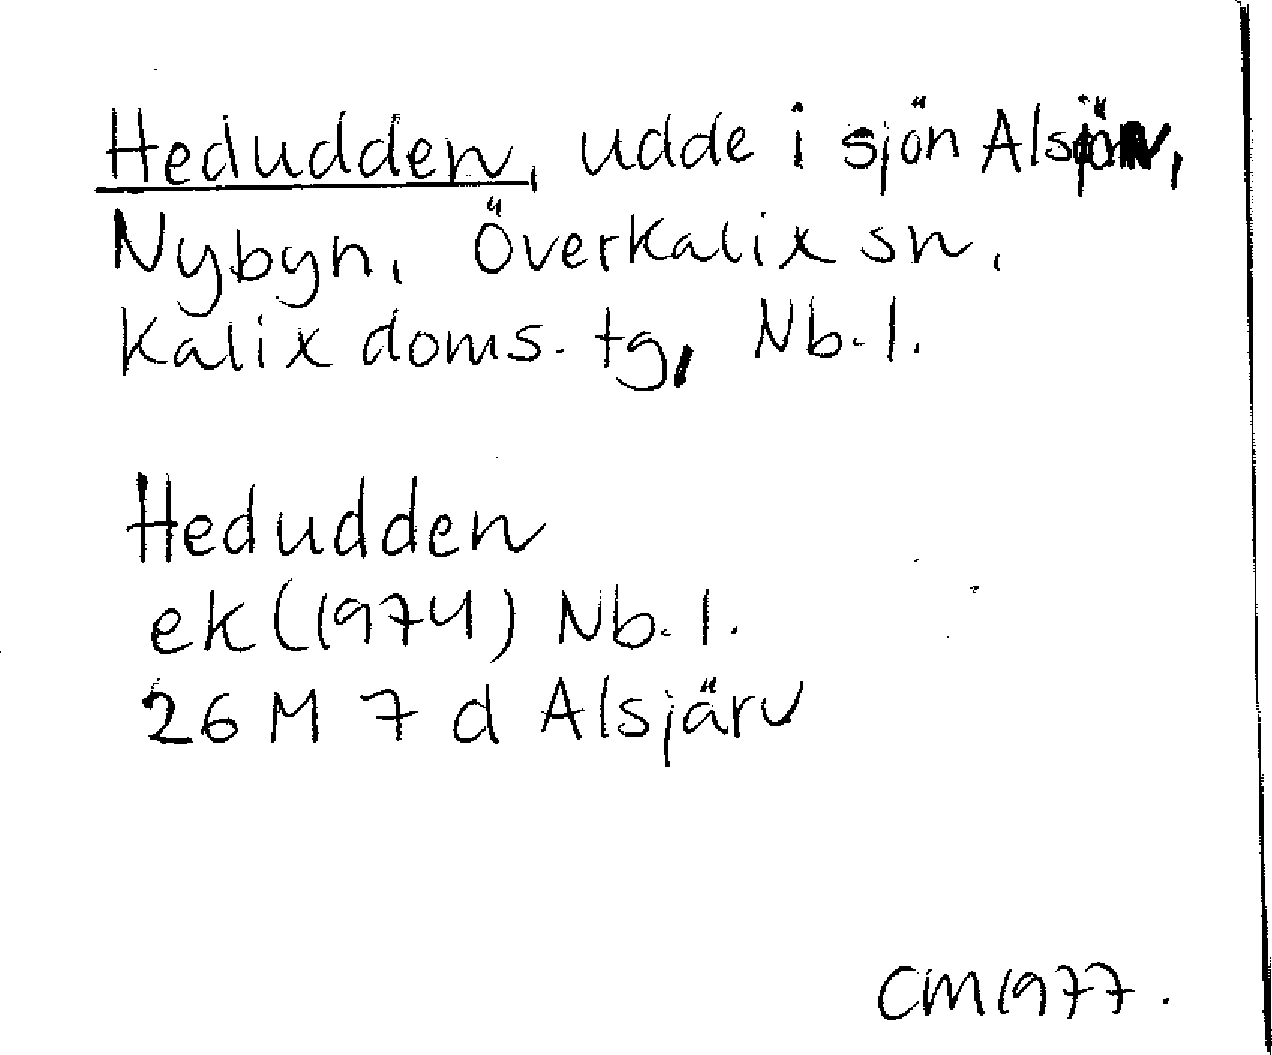 Hedudden, udde i sjön
Nybyn, Överkalix sn,
Kalix doms. tg, Nb. l.
Hedudden
ek (1974) Nb. l.
26 M 7 d Alsjärv
CM 1977.